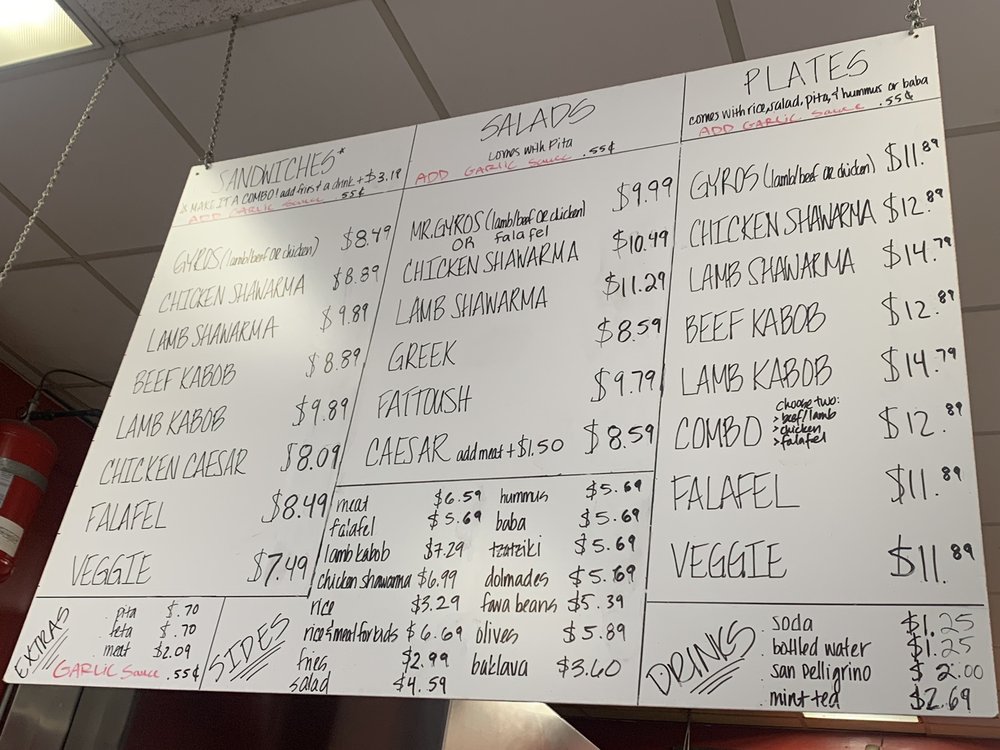 SANDWICHES*
$ MAKE IT A COMBO! add fries & a drink + $3.19
ADD GARLIC Sauce .55¢
GYROS (lamb/beef OR chicken) $8.49
CHICKEN SHAWARMA $8.89
LAMB SHAWARMA $9.89
BEEF KABOB $8.89
LAMB KABOB $9.89
CHICKEN CAESAR $8.09
FALAFEL $8.49
VEGGIE $7.49
EXTRAS
pita $.70
feta $.70
meat $2.09
GARLIC Sauce .55¢
SALADS
comes with pita
ADD GARLIC Sauce .55¢
MR.GYROS (lamb/beef OR chicken) $9.99
OR falafel
CHICKEN SHAWARMA $10.49
LAMB SHAWARMA $11.29
GREEK $8.59
FATTOUSH $9.79
CAESAR add meat + $1.50 $8.59
SIDES
meat $6.59
falafel $5.69
lamb kabob $7.29
chicken shawarma $6.99
rice $3.29
rice & meat for kids $6.69
fries $2.99
salad $4.59
hummus $5.69
baba $5.69
tzatziki $5.69
dolmades $5.69
fava beans $5.39
olives $5.89
baklava $3.60
PLATES
comes with rice, salad, pita, & hummus or baba
ADD GARLIC Sauce .55¢
GYROS (lamb/beef OR chicken) $11.89
CHICKEN SHAWARMA $12.89
LAMB SHAWARMA $14.79
BEEF KABOB $12.89
LAMB KABOB $14.79
COMBO choose two: $12.89
> beef/lamb
> chicken
> falafel
FALAFEL $11.89
VEGGIE $11.89
DRINKS
soda $1.25
bottled water $1.25
san pelligrino $2.00
mint tea $2.69